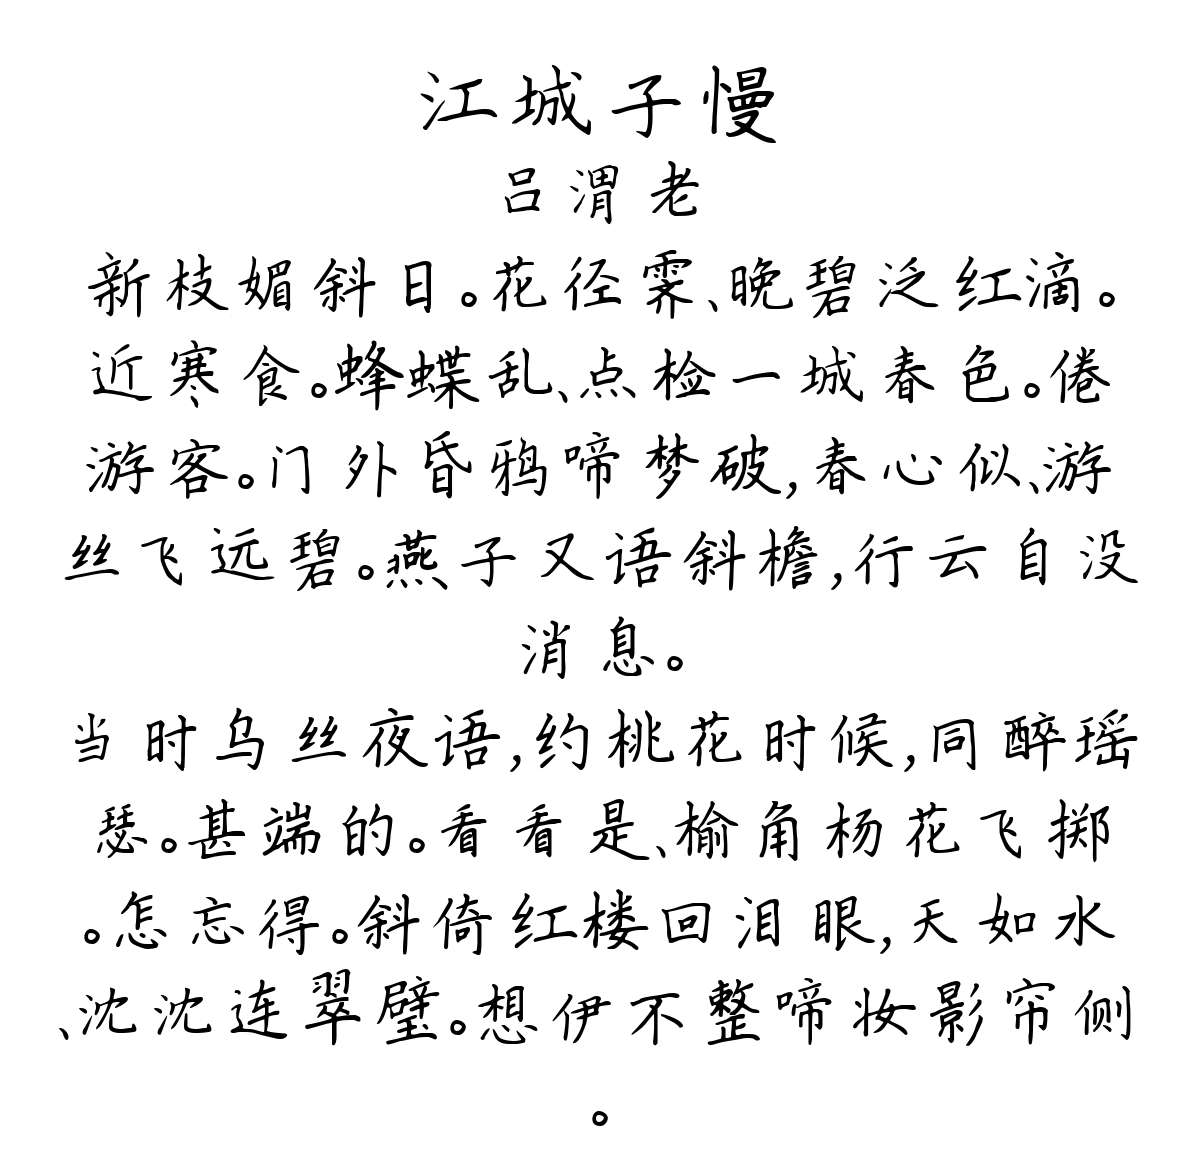 江城子慢
吕渭老
新枝媚斜日。花径霁、晚碧泛红滴。
近寒食。蜂蝶乱、点检一城春色。倦
游客。门外昏鸦啼梦破,春心似、游
丝飞远碧。燕子又语斜檐,行云自没
消息。
当时乌丝夜语,约桃花时候,同醉瑶
瑟。甚端的。看看是、榆角杨花飞掷
。怎忘得。斜倚红楼回泪眼,天如水
、沈沈连翠璧。想伊不整啼妆影帘侧
。